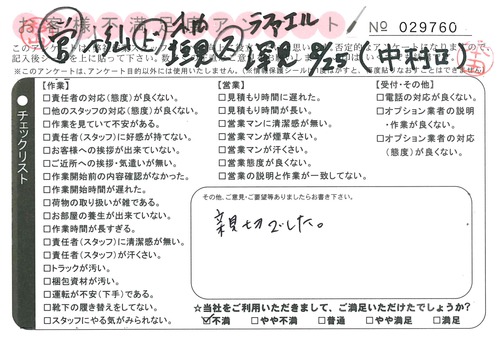 お客様不満足度アンケート
№ 029760
ラファエル
営
8/25 中村
※このアンケートは、アンケート目的以外には使用いたしません。
チェックリスト
【作業】
□責任者の対応(態度)が良くない。
□他のスタッフの対応(態度)が良くない。
□作業を見ていて不安がある。
□責任者(スタッフ)に好感が持てない。
□お客様への挨拶が出来ていない。
□ご近所への挨拶・気遣いが無い。
□作業開始前の内容確認がなかった。
□作業開始時間が遅れた。
□荷物の取り扱いが雑である。
□お部屋の養生が出来ていない。
□作業時間が長すぎる。
□責任者(スタッフ)に清潔感が無い。
□責任者(スタッフ)が汗くさい。
□トラックが汚い。
□梱包資材が汚い。
□運転が不安(下手)である。
□靴下の履き替えをしてない。
□スタッフにやる気がみられない。
【営業】
□見積もり時間に遅れた。
□見積もり時間が長い。
□営業マンに清潔感が無い。
□営業マンが煙草くさい。
□営業マンが汗くさい。
□営業態度が良くない。
□営業の説明と作業が一致してない。
【受付・その他】
□電話の対応が良くない。
□オプション業者の説明
・作業が良くない。
□オプション業者の対応
(態度)が良くない。
その他、ご意見・ご要望等ありましたらお書き下さい。
親切でした。
☆当社をご利用いただきまして、ご満足いただけたでしょうか?
☑不満 □やや不満 □普通 □やや満足 □満足